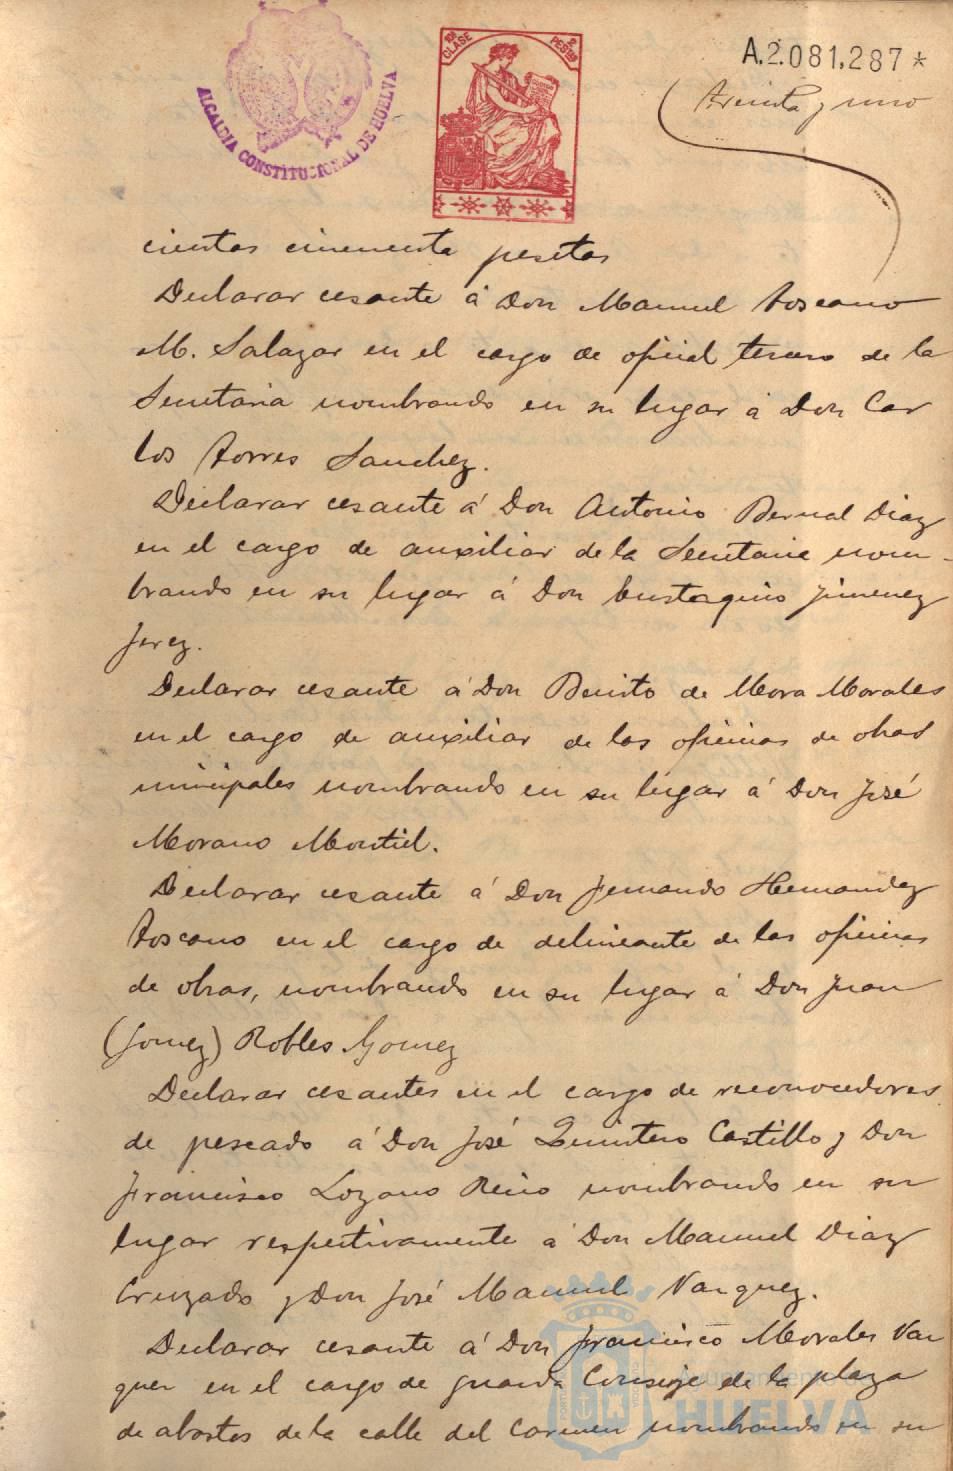 ALCALDIA CONSTITUCIONAL DE HUELVA
10ª CLASE
2 PESETAS
A.2.081,287 *
Treinta y uno
cientas cincuenta pesetas
Declarar cesante á Don Manuel Toscano
M. Salazar en el cargo de oficial tercero de la
Secretaria nombrando en su lugar á Don Car
los Torres Sanchez.
Declarar cesante á Don Antonio Bernal Diaz
en el cargo de auxiliar de la Secretaria nom-
brando en su lugar á Don Eustaquio Jimenez
Jerez.
Declarar cesante á Don Benito de Mora Morales
en el cargo de auxiliar de las oficinas de obras
municipales nombrando en su lugar á Don José
Morano Montiel.
Declarar cesante á Don Fernando Hernandez
Toscano en el cargo de delineante de las oficinas
de obras, nombrando en su lugar á Don Juan
(Gomez) Robles Gomez
Declarar cesantes en el cargo de reconocedores
de pescado á Don José Quintero Castillo y Don
Francisco Lozano Reino nombrando en su
lugar respectivamente á Don Manuel Diaz
Cruzado y Don José Manuel Vazquez.
Declarar cesante á Don Francisco Morales Vaz
quez en el cargo de guarda Conserje de la plaza
de abastos de la calle del Carmen nombrando en su
Ayuntamiento de
HUELVA